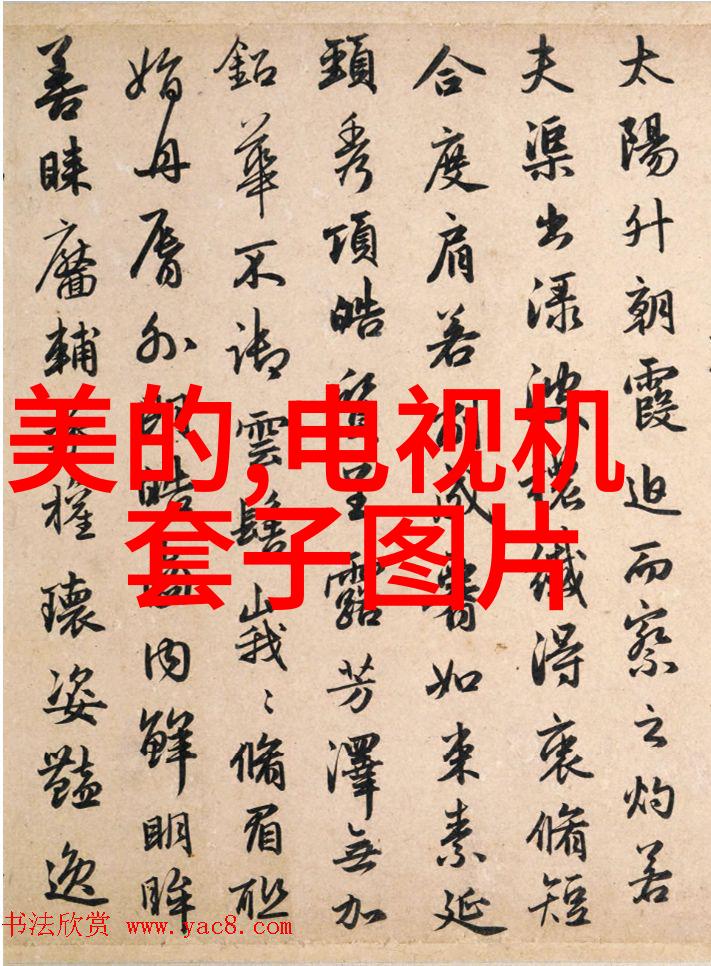 太陽升朝霞迫而察之灼若
夫渠出淥波穠纖得衷脩短
合度肩若成腰如束素延
頸秀項皓質呈露芳澤無加
鉛華不御雲髻峩〻脩眉聯
娟丹脣外朗皓内鮮明眸
善睞靨輔權瓌姿豔逸
美的,电视机
套子图片
书法欣赏 www.yac8.com